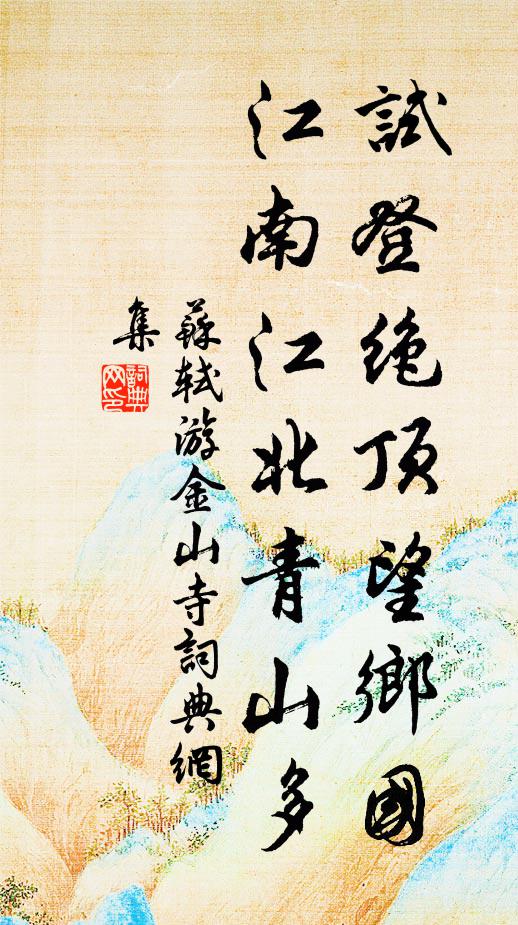 試登絶頂望鄉國
江南江北青山多
蘇軾游金山寺詞典網
集
詞典
网印